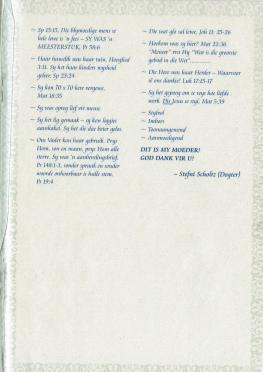 ~ Sp 15:15, Die blymoedige mens se
hele lewe is 'n fees – SY WAS 'n
MEESTERSTUK, Ps 58:6
~ Haar huwelik een haar ruin, Hooglied
1:11. Sy het haar kinders wysheid
geleer, Sp 23:24
~ Sy kon 70 x 70 kere vergewe,
Mat 18:35
~ Sy was opreg lief vir mense
~ Sy het lig gemaak – sy kon liggies
aanskakel. Sy het die dae beter gelos
~ Ons Vader kon haar gebruik. Prys
Hom, son en maan, prys Hom alle
sterre. Sy was 'n aanbevelingsbrief,
Ps 148:1-3, sonder spraak en sonder
woorde onhoorbaar is hulle stem,
Ps 19:4
~ Die wat glo sal lewe, Joh 11: 25-26
~ Hoekom was sy hier? Mat 22:36
"Meneer" vra Hy "Wat is die grootste
gebod in die Wet"
~ Die Here was haar Herder – Waarvoor
sê ons dankie? Luk 17:15-17
~ Sy het gegooi om te sien hoe liefde
werk. Dit Jesus se styl. Mat 5:39
~ Stylvol
~ Indoen
~ Toonaangewend
~ Aanmoedigend
DIT IS MY MOEDER!
GOD DANK VIR U!
– Stefni Scholtz (Dogter)